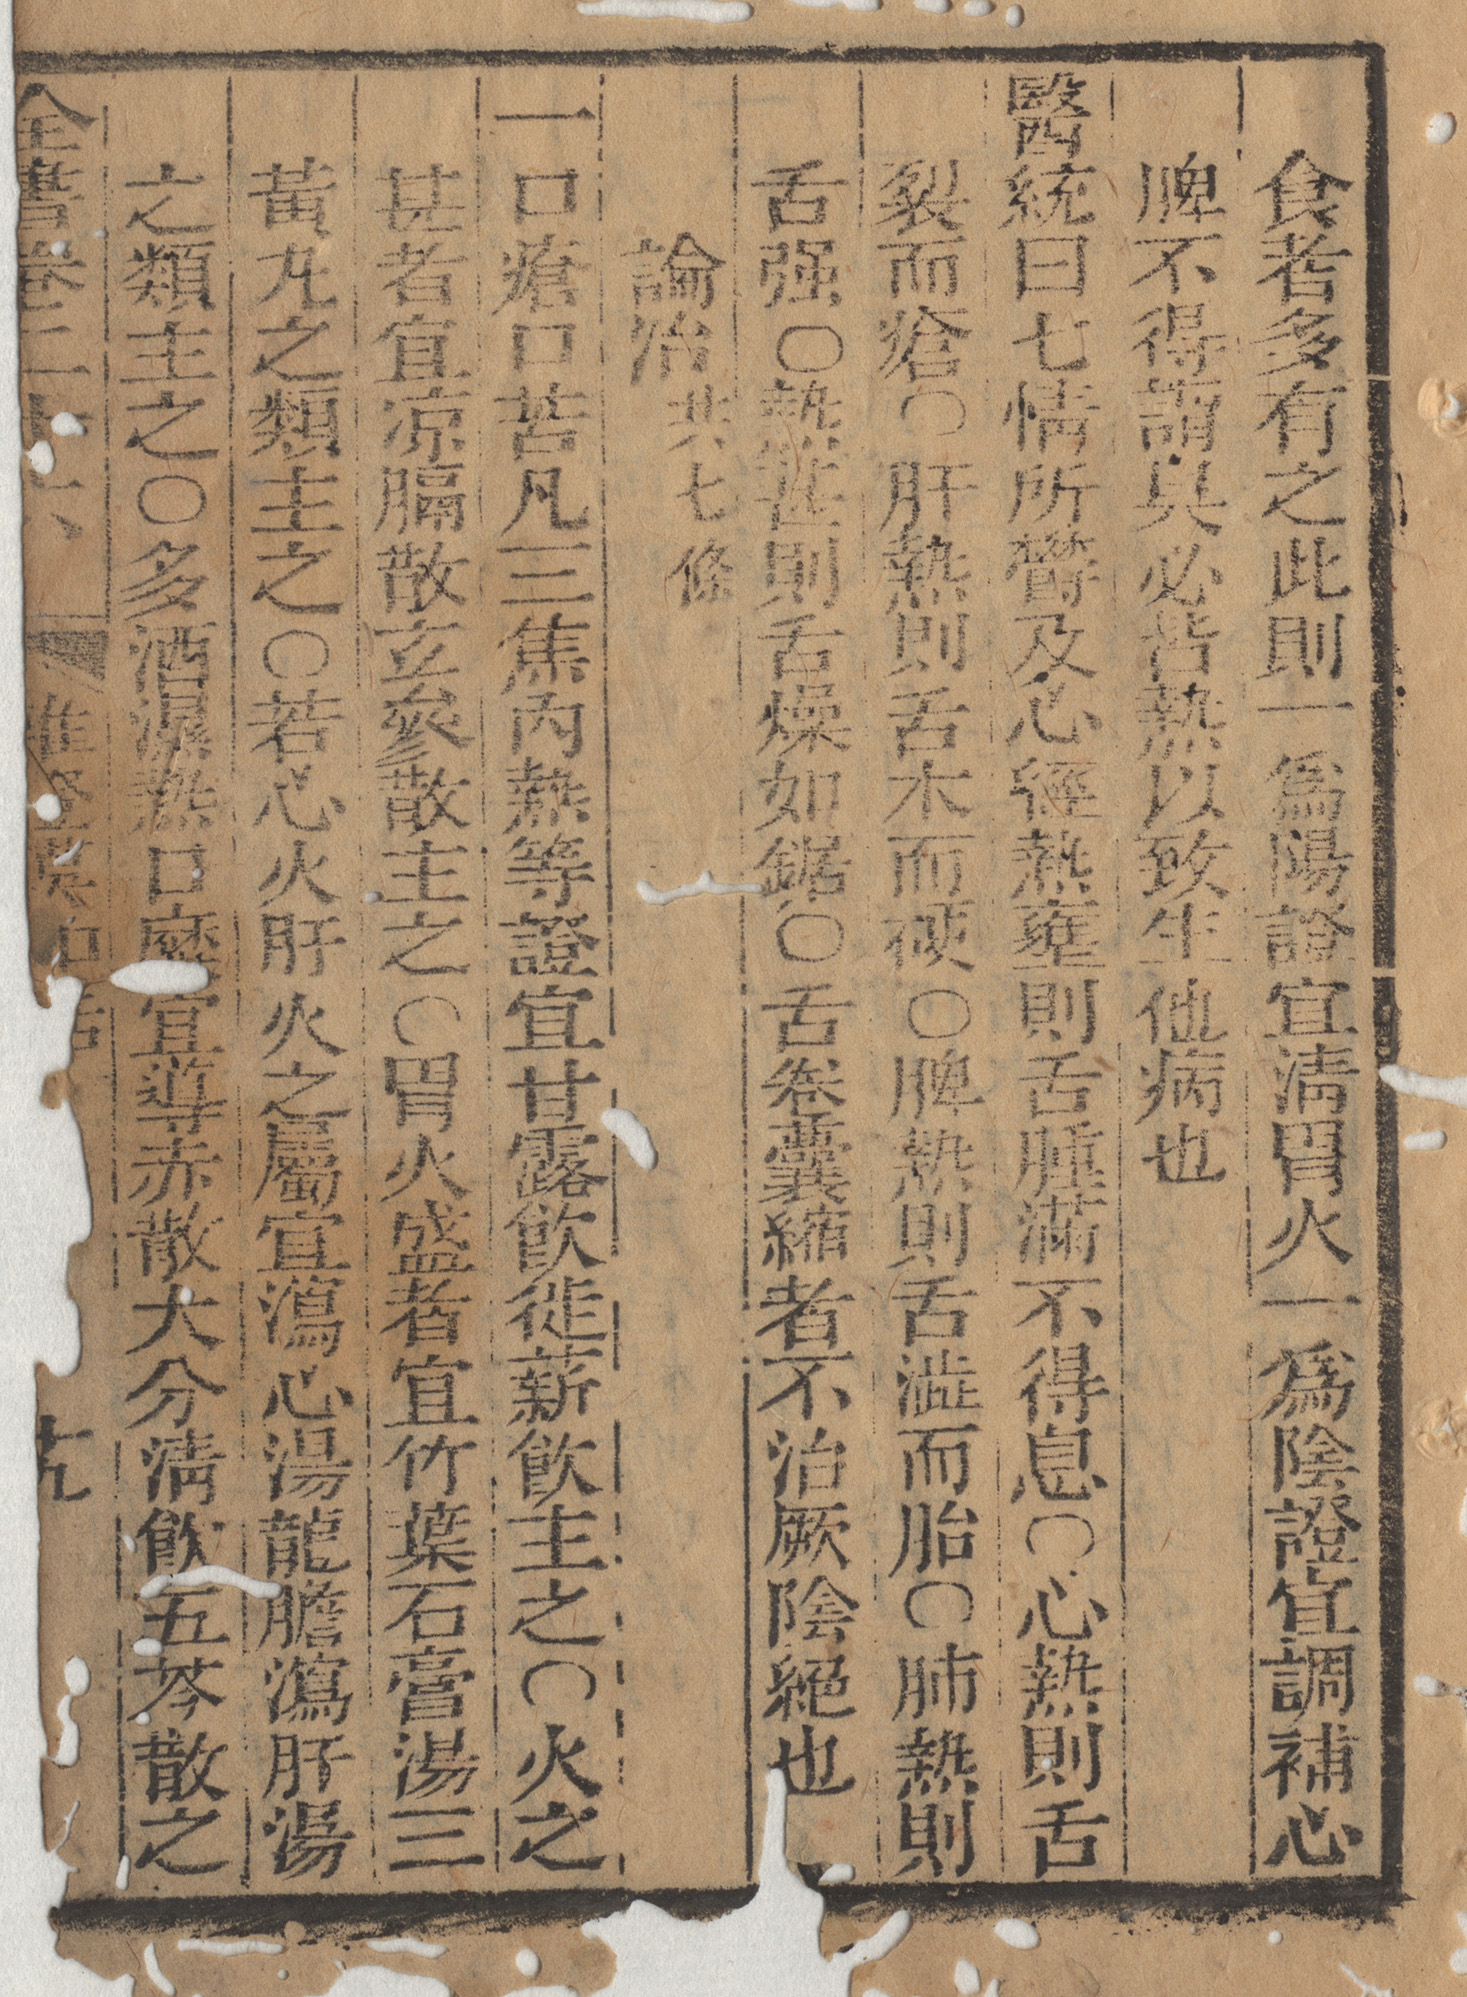 食者多有之此則一爲陽證宜淸胃火一爲陰證宜調補心
脾不得謂其必皆熱以致生他病也
醫統曰七情所欝及心經熱壅則舌腫滿不得息〇心熱則舌
裂而瘡〇肝熱則舌木而硬〇脾熱則舌澁而胎〇肺熱則
舌强〇熱甚則舌燥如鋸〇舌卷囊縮者不治厥陰絕也
論治共七條
一口瘡口苦凡三焦內熱等證宜甘露飮徙薪飮主之〇火之
甚者宜凉膈散玄參散主之〇胃火盛者宜竹葉石膏湯三
黃丸之類主之〇若心火肝火之屬宜瀉心湯龍膽瀉肝湯
之類主之〇多酒濕熱口糜宜導赤散大分淸飮五苓散之
全書卷二十六 雜證謨 口舌